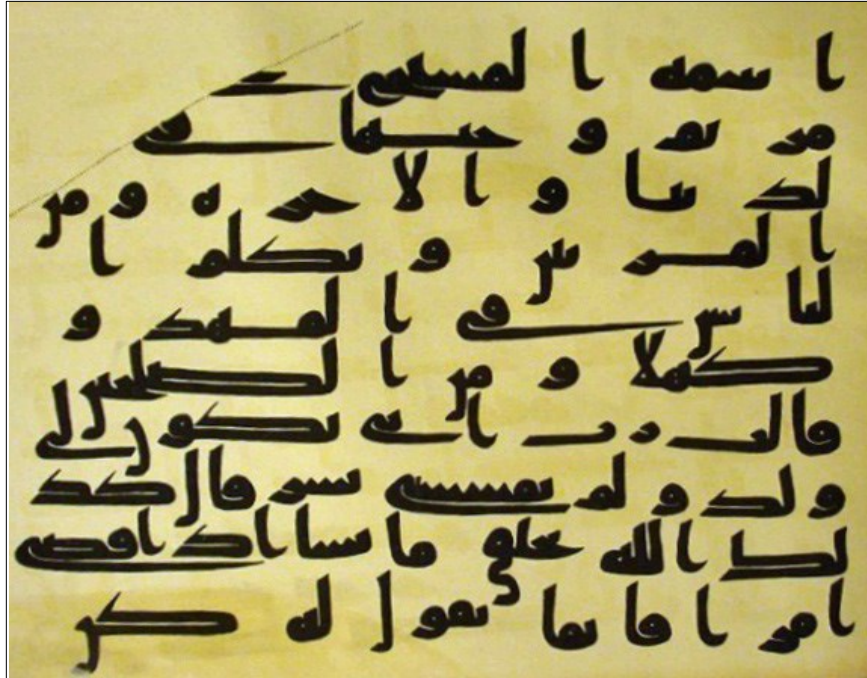 اسمه المسيح
مريم وجيها في
لدنيا والاخرة ومن
المقربين ويكلم ا
لناس في المهد و
كهلا ومن الصلحين
قالت رب انى يكون لي
ولد ولم يمسسني بشر قال كذ
لك الله يخلق ما يشا اذا قضى
امرا فانما يقول له كن